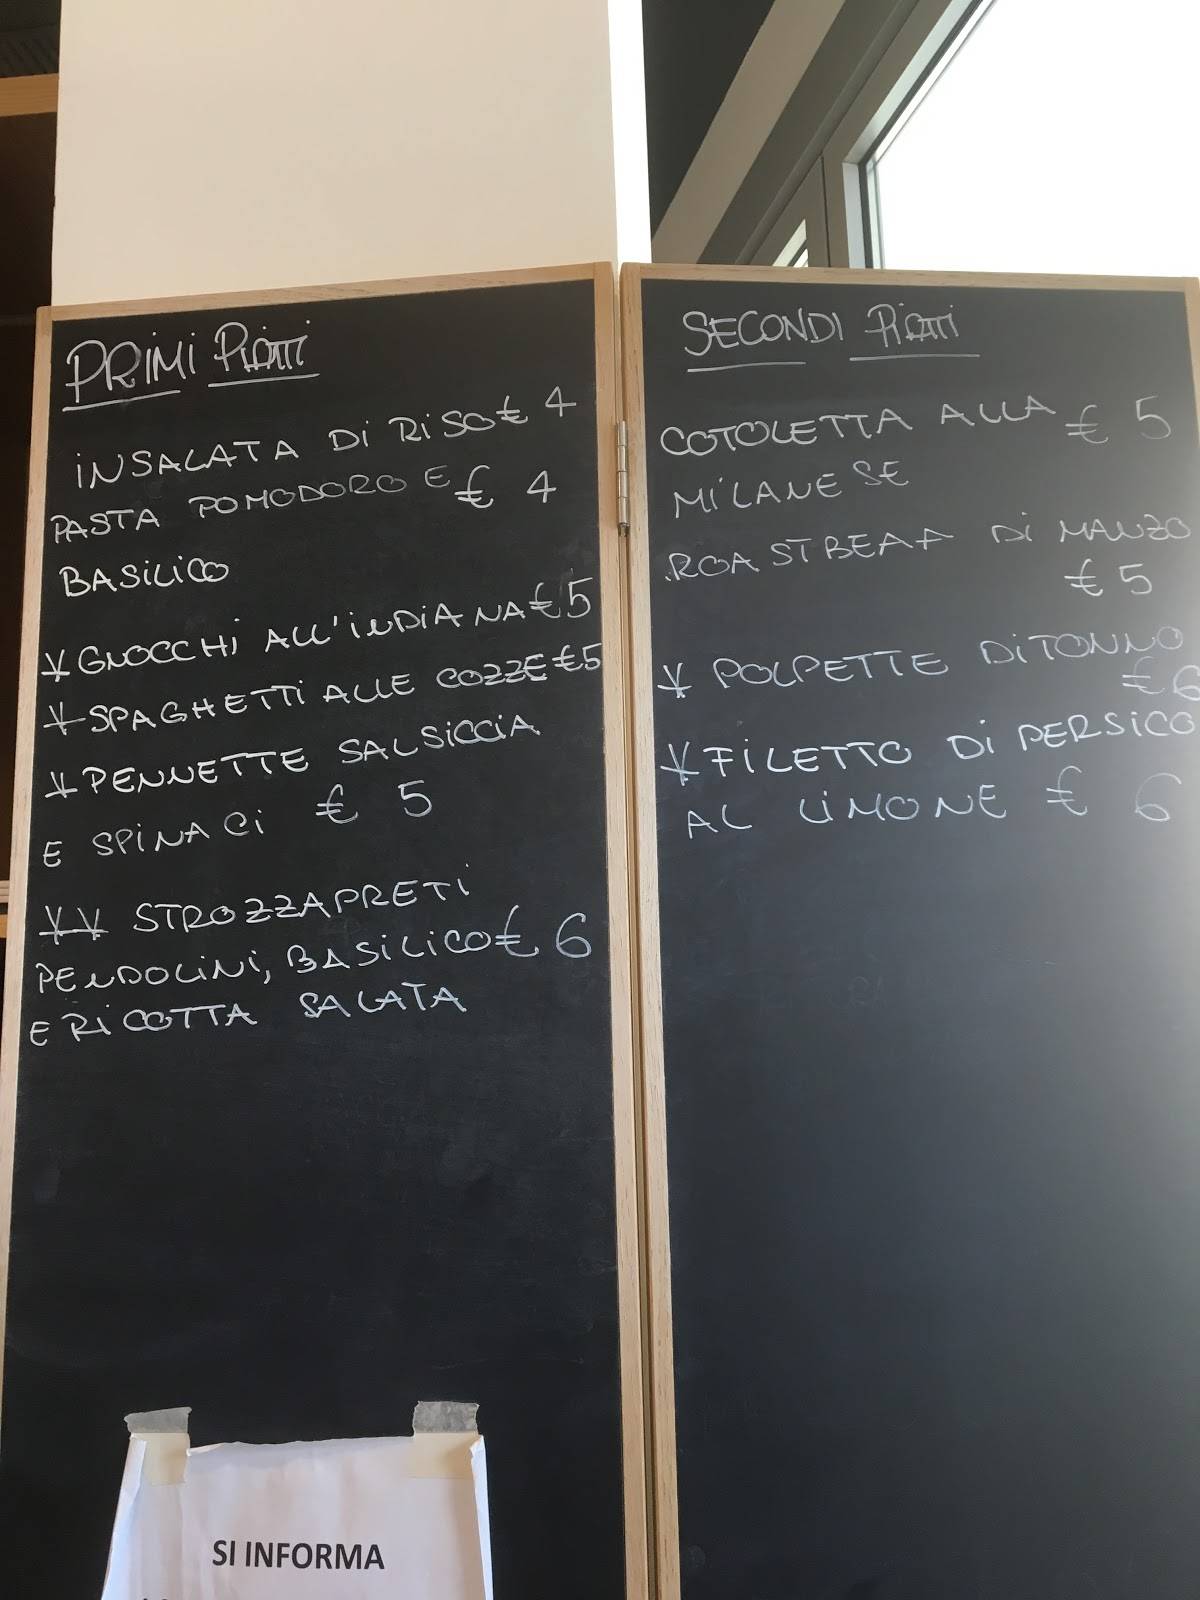 PRIMI PIATTI
INSALATA DI RISO € 4
PASTA POMODORO E € 4
BASILICO
* GNOCCHI ALL'INDIANA € 5
* SPAGHETTI ALLE COZZE € 5
* PENNETTE SALSICCIA
E SPINACI € 5
** STROZZAPRETI
PENDOLINI, BASILICO € 6
E RICOTTA SALATA
SI INFORMA
SECONDI PIATTI
COTOLETTA ALLA € 5
MILANESE
ROASTBEAF DI MANZO
€ 5
* POLPETTE DI TONNO
€ 6
* FILETTO DI PERSICO
AL LIMONE € 6